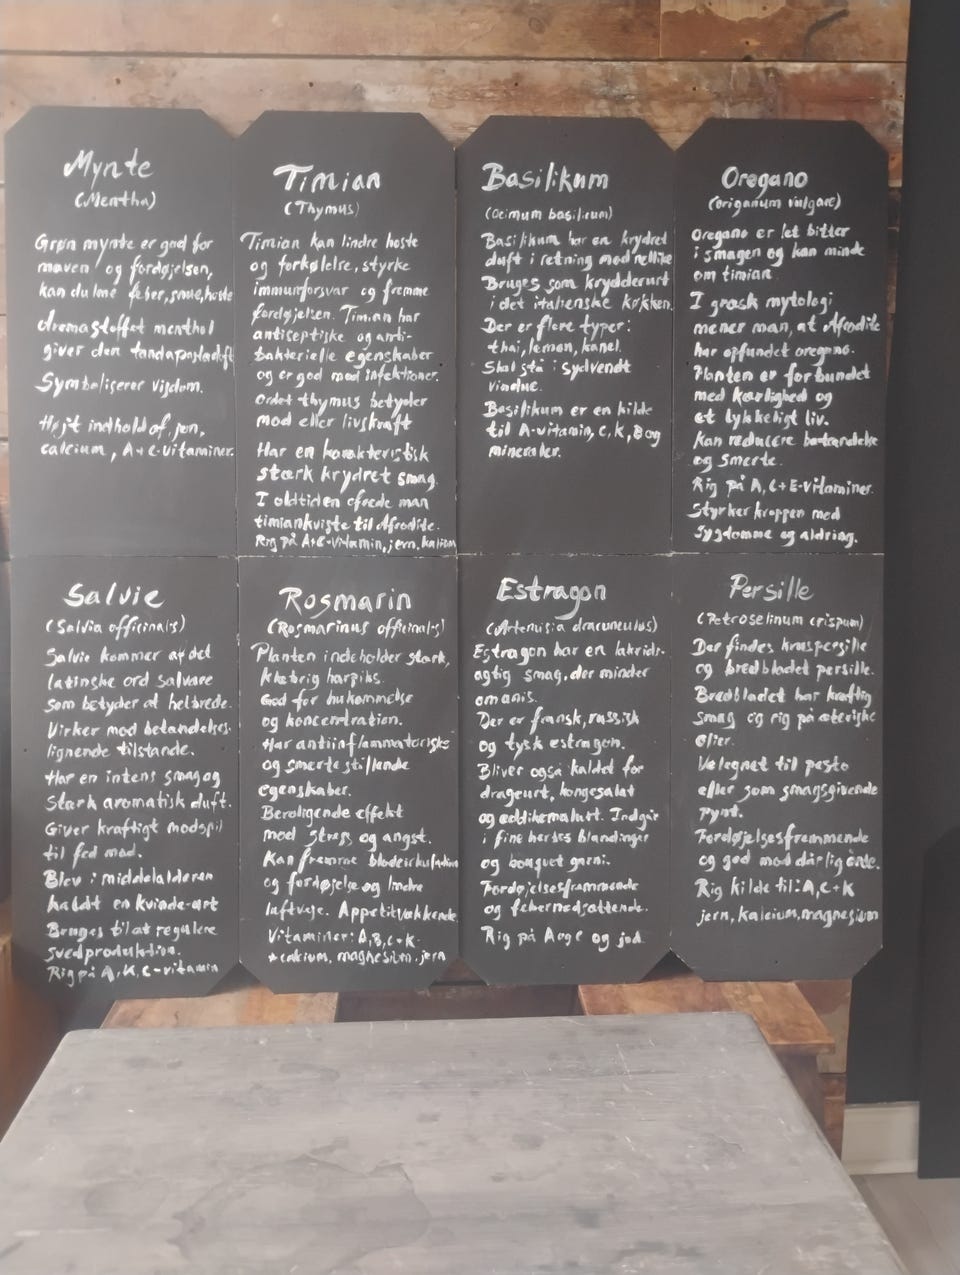 Mynte
(Mentha)
Grøn mynte er god for
maven og fordøjelsen,
kan dulme feber, snue, hoste
aromastoffet menthol
giver den tandapastaduft
Symboliserer visdom.
Højt indhold af jern,
calcium, A+C-vitaminer.
Timian
(Thymus)
Timian kan lindre hoste
og forkølelse, styrke
immunforsvar og fremme
fordøjelsen. Timian har
antiseptiske og anti-
bakterielle egenskaber
og er god mod infektioner.
Ordet thymus betyder
mod eller livskraft
Har en karakteristisk
stærk krydret smag.
I oldtiden ofrede man
timiankviste til Afrodite.
Rig på A+C-vitamin, jern, kalium
Basilikum
(Ocimum basilicum)
Basilikum har en krydret
duft i retning mod nellike
Bruges som krydderurt
i det italienske køkken.
Der er flere typer:
thai, lemon, kanel.
Skal stå i sydvendt
vindue.
Basilikum er en kilde
til A-vitamin, C, K, B og
mineraler.
Oregano
(origanum vulgare)
Oregano er let bitter
i smagen og kan minde
om timian
I græsk mytologi
mener man, at Afrodite
har opfundet oregano.
Planten er forbundet
med kærlighed og
et lykkeligt liv.
Kan reducere betændelse
og smerte.
Rig på A, C+E-Vitaminer.
Styrker kroppen mod
sygdomme og aldring.
Salvie
(Salvia officinalis)
Salvie kommer af det
latinske ord salvare
som betyder at helbrede.
Virker mod betændelses-
lignende tilstande.
Har en intens smag og
stærk aromatisk duft.
Giver kraftigt modspil
til fed mad.
Blev i middelalderen
kaldt en kvinde-urt
Bruges til at regulere
svedproduktion.
Rig på A, K, C-vitamin
Rosmarin
(Rosmarinus officinalis)
Planten indeholder stærk,
klæbrig harpiks.
God for hukommelse
og koncentration.
Har antiinflammatoriske
og smertestillende
egenskaber.
Beroligende effekt
mod stress og angst.
Kan fremme blodcirkulation
og fordøjelse og lindre
luftveje. Appetitvækkende
Vitaminer: A, B, C+K
+ calcium, magnesium, jern
Estragon
(Artemisia dracunculus)
Estragon har en lakrids-
agtig smag, der minder
om anis.
Der er fransk, russisk
og tysk estragon.
Bliver også kaldet for
drageurt, kongesalat
og eddikemalurt. Indgår
i fine herbes blandinger
og bouquet garni.
Fordøjelsesfremmende
og febernedsættende.
Rig på A og C og jod.
Persille
(Petroselinum crispum)
Der findes kruspersille
og bredbladet persille.
Bredbladet har kraftig
smag og rig på æteriske
Olier.
Velegnet til pesto
eller som smagsgivende
pynt.
Fordøjelsesfremmende
og god mod dårlig ånde.
Rig kilde til: A, C+K
jern, kalcium, magnesium